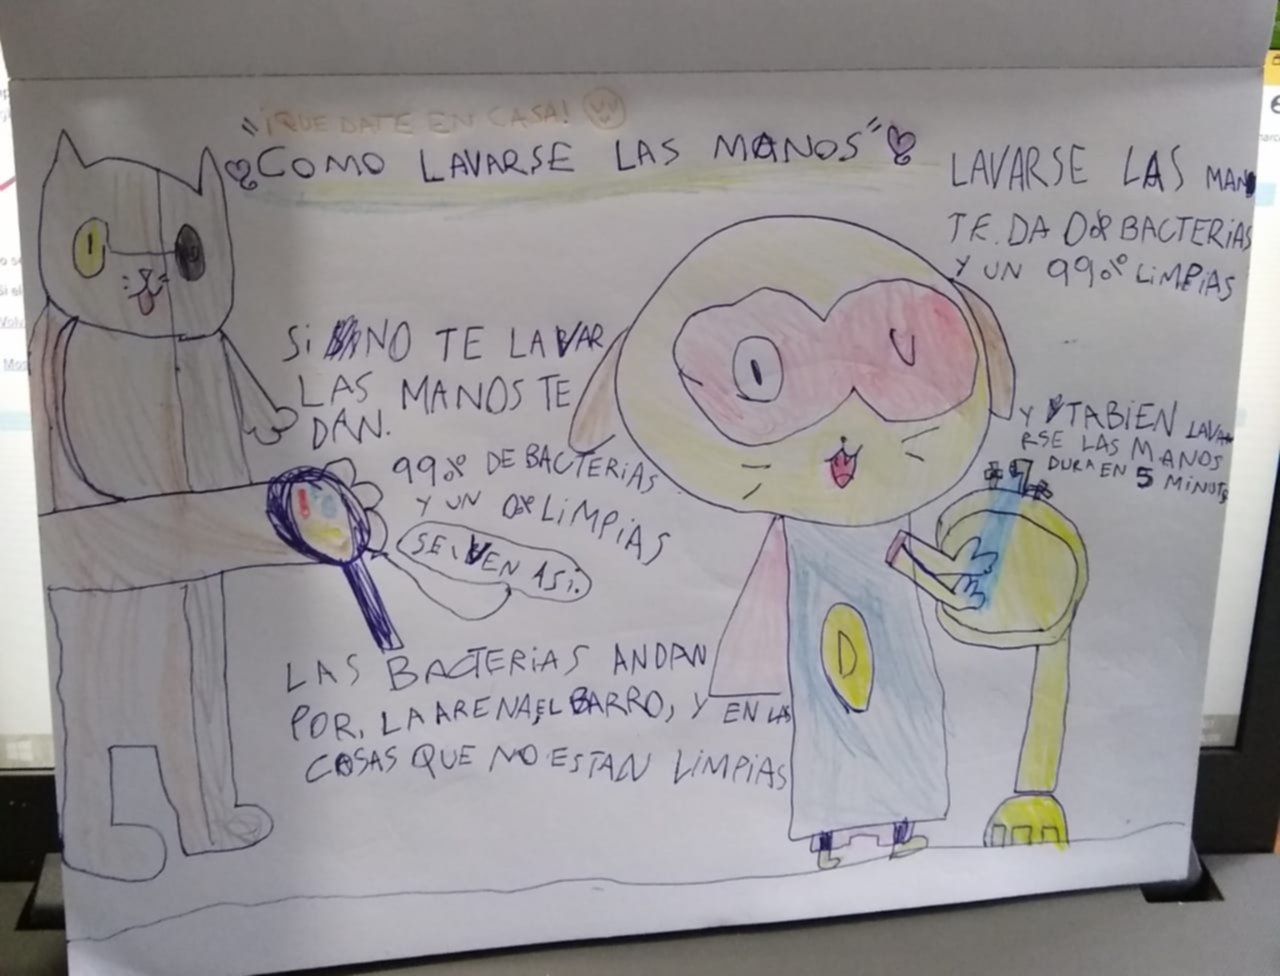 "¡QUEDATE EN CASA!
COMO LAVARSE LAS MANOS"
LAVARSE LAS MANO
TE DA 0% BACTERIAS
Y UN 99% LIMPIAS
Si NO TE LAVAR
LAS MANOS TE
DAN.
99% DE BACTERiAS
Y UN 0% LiMPiAS
SE VEN ASi.
Y TABiEN LAVA
RSE LAS MANOS
DURA EN 5 MiNUTS
LAS BACTERiAS ANDAN
POR, LA ARENA, EL BARRO, Y EN LAS
COSAS QUE NO ESTAN LiMPiAS
D